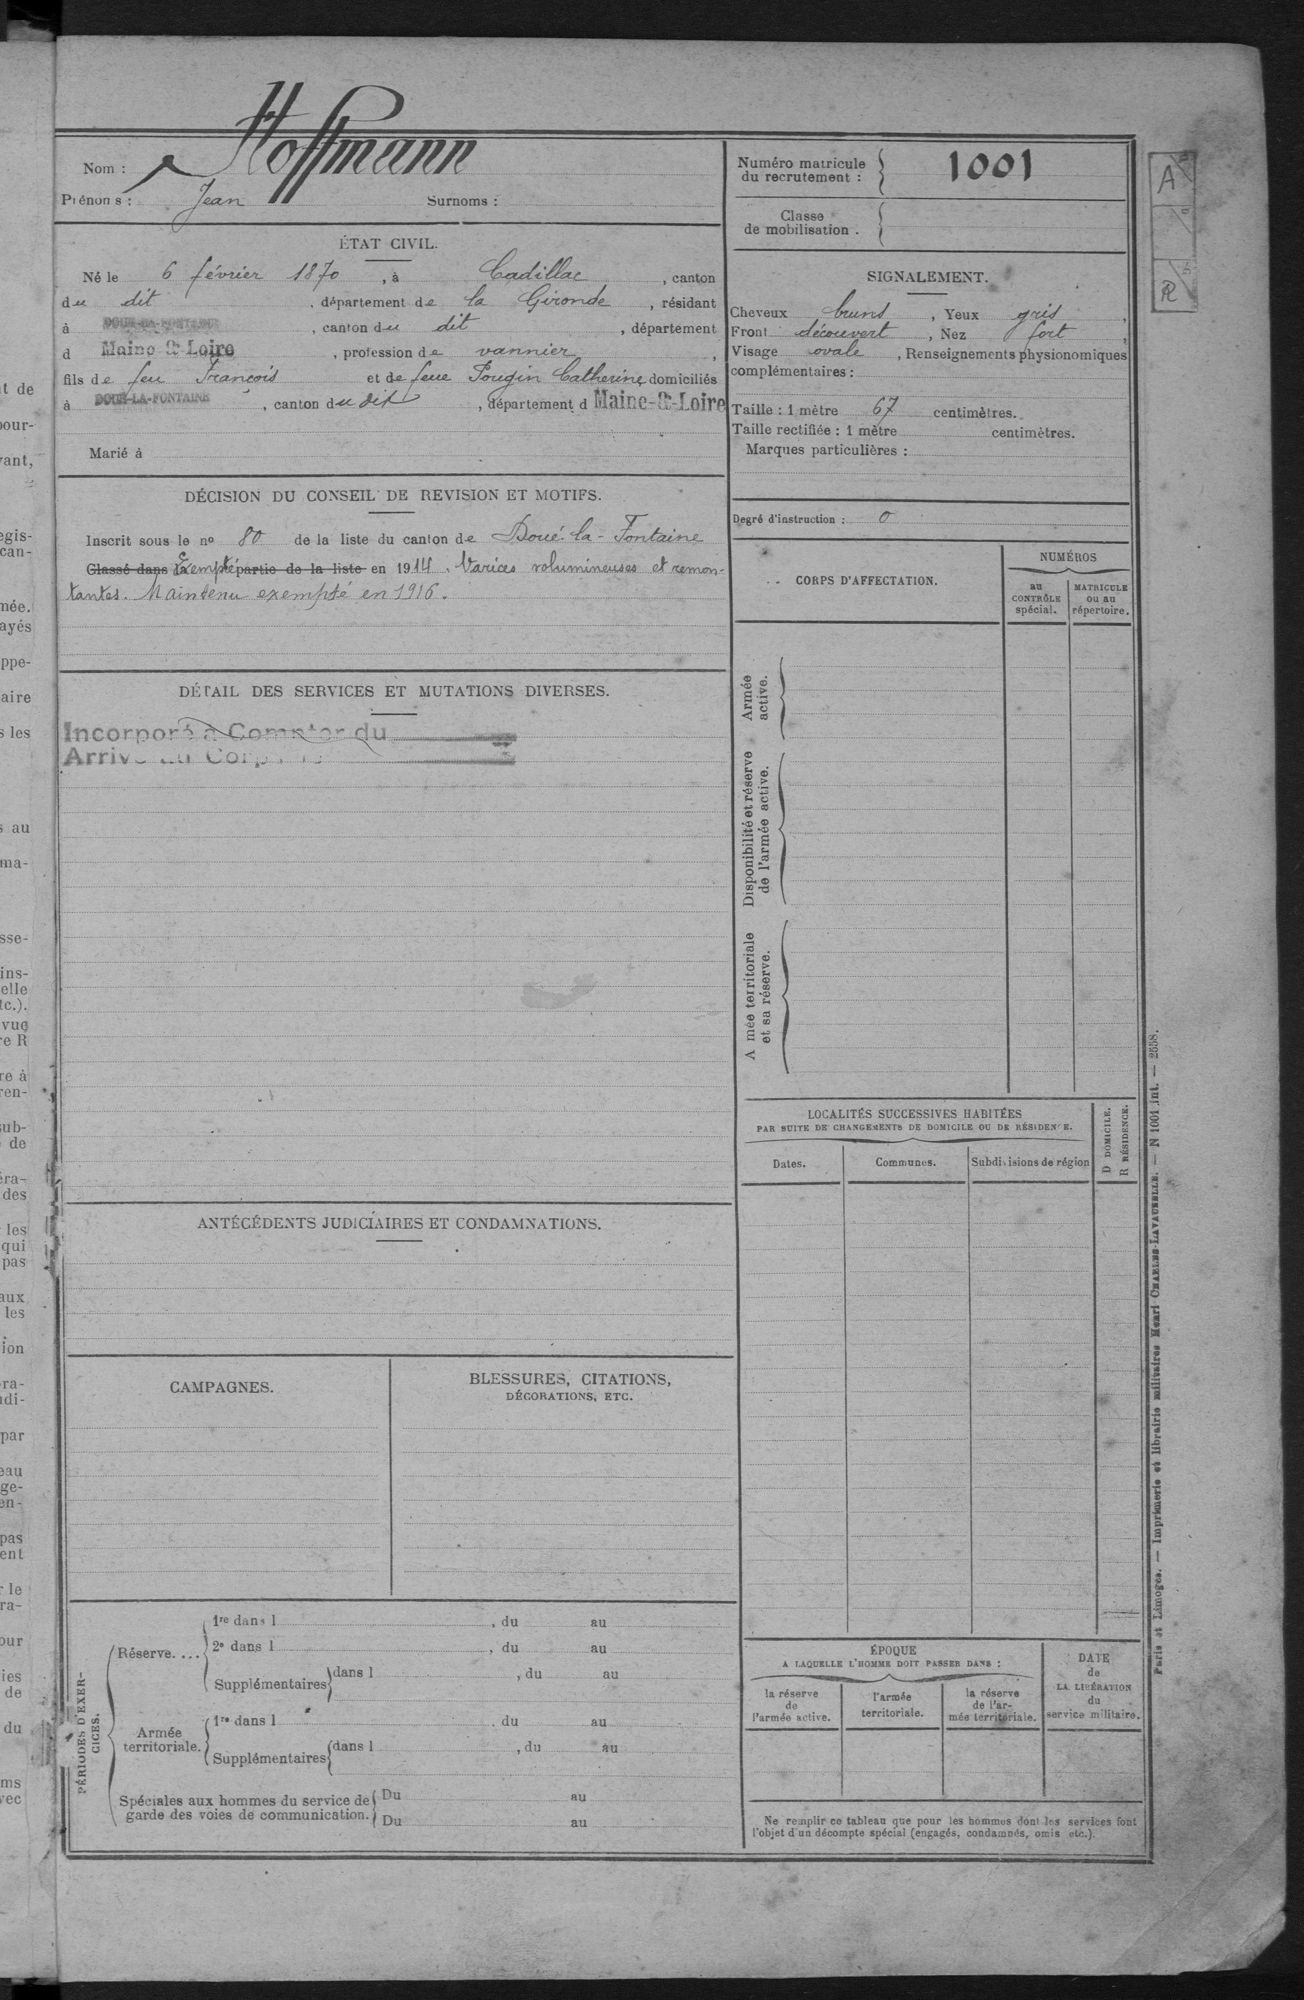 Nom : Hoffmann
Prénoms : Jean Surnoms :
ÉTAT CIVIL.
Né le 6 février 1870, à Cadillac, canton
du dit, département de la Gironde, résidant
à DOUÉ-LA-FONTAINE, canton du dit, département
d Maine-&-Loire, profession de vannier,
fils de feu François et de feue Pougin Catherine domiciliés
à DOUÉ-LA-FONTAINE, canton du dit, département d Maine-&-Loire
Marié à
DÉCISION DU CONSEIL DE REVISION ET MOTIFS.
Inscrit sous le no 80 de la liste du canton de Doué-la-Fontaine
Classé dans la Exempté partie de la liste en 1914. Varices volumineuses et remon-
tantes. Maintenu exempté en 1916.
DÉTAIL DES SERVICES ET MUTATIONS DIVERSES.
Incorporé à Compter du
Arrivé au Corps le
ANTÉCÉDENTS JUDICIAIRES ET CONDAMNATIONS.
CAMPAGNES.
BLESSURES, CITATIONS,
DÉCORATIONS, ETC.
PÉRIODES D'EXER-
CICES.
Réserve....
1re dans l , du au
2e dans l , du au
Supplémentaires dans l , du au
Armée
territoriale.
1re dans l , du au
Supplémentaires dans l , du au
Spéciales aux hommes du service de
garde des voies de communication.
Du au
Du au
Numéro matricule
du recrutement : 1001
Classe
de mobilisation .
SIGNALEMENT.
Cheveux bruns, Yeux gris,
Front découvert, Nez fort,
Visage ovale, Renseignements physionomiques
complémentaires :
Taille : 1 mètre 67 centimètres.
Taille rectifiée : 1 mètre centimètres.
Marques particulières :
Degré d'instruction : 0
CORPS D'AFFECTATION.
NUMÉROS
au
CONTRÔLE
spécial.
MATRICULE
ou au
répertoire.
Armée
active.
Disponibilité et réserve
de l'armée active.
A mée territoriale
et sa réserve.
LOCALITÉS SUCCESSIVES HABITÉES
PAR SUITE DE CHANGEMENTS DE DOMICILE OU DE RÉSIDENCE.
D DOMICILE.
R RÉSIDENCE.
Dates.
Communes.
Subdivisions de région
ÉPOQUE
A LAQUELLE L'HOMME DOIT PASSER DANS :
la réserve
de
l'armée active.
l'armée
territoriale.
la réserve
de l'ar-
mée territoriale.
DATE
de
LA LIBÉRATION
du
service militaire.
Ne remplir ce tableau que pour les hommes dont les services font
l'objet d'un décompte spécial (engagés, condamnés, omis etc.).
Paris et Limoges. — Imprimerie et librairie militaires Henri CHARLES-LAVAUZELLE. — N 1001 int. — 2558.
A
R